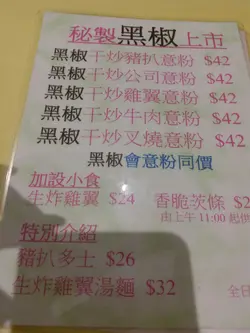 秘製黑椒上市
黑椒干炒豬扒意粉 $42
黑椒干炒公司意粉 $42
黑椒干炒雞翼意粉 $42
黑椒干炒牛肉意粉 $42
黑椒干炒叉燒意粉 $42
黑椒會意粉同價
加設小食
生炸雞翼 $24 香脆茨條 $2
由上午 11:00 起供
特別介紹
豬扒多士 $26
生炸雞翼湯麵 $32 全日